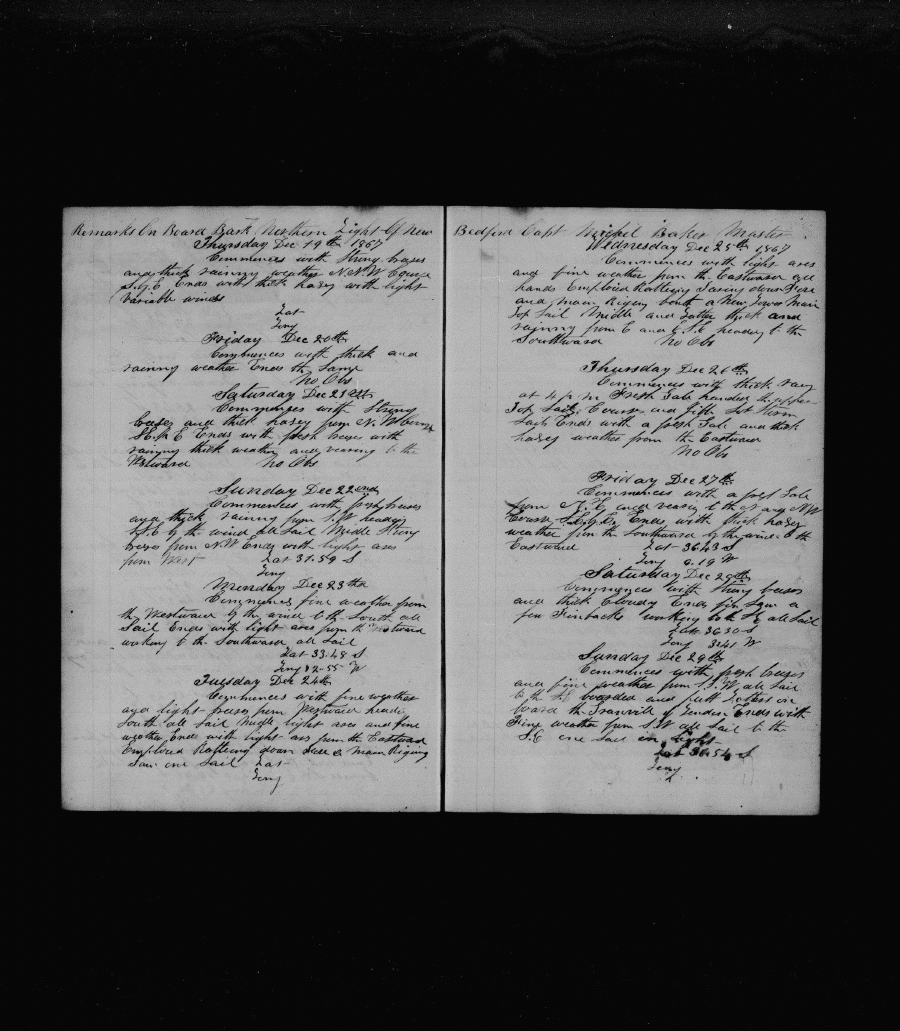 Remarks On Board Bark Northern Light Of New
Thursday Dec 19th 1867
Commences with strong breses
and thick rainny weather N.N.W Course
S.S.E Ends with thick hazey with light
Variable winds
Lat
Long
Friday Dec 20th
Commences with thick and
rainny weather Ends the Same
No Obs
Saturday Dec 21st
Commences with Strong
breses and thick hazey from N.W
Ends with fresh breses with
rainny thick weather and vearing to the
No Obs
Sunday Dec 22ond
Commences with fresh breses
and thick rainny from S.W heading
S.E by the wind all Sail Midle Strong
breses from N.W Ends with light ares
from West Lat 31-59 S
Long
Monday Dec 23th
Commences fine weather from
the Westward by the wind to the South all
Sail Ends with light ares from the Westward
working to the Southward all Sail
Lat 33-48 S
Long 12-55 W
Tuesday Dec 24th
Commences with fine weather
and light breses from Westward heading
South all Sail Midle light ares and fine
weather Ends with light ares from the Eastward
Employed Ratleing down Fore & Main Riging
Saw one Sail Lat
Long
Bedford Capt Baker Master
Wednesday Dec 25th 1867
Commences with light ares
and fine weather from the Eastward all
hands Employed Ratleing down Fore
and Main Riging bent a New Lower Main
Top Sail Midle and Latter thick and
rainny from E and E.S.E heading to the
Southward No Obs
Thursday Dec 26th
Commences with thick
at 4 P.M Fresh Gale handed the upper
Top Sails Course and Gibb
Sails Ends with a fresh Gale and thick
hazey weather from the Eastward
No Obs
Friday Dec 27th
Commences with a fresh Gale
from and N.W
Course Ends with thick hazey
weather from the Southward by the wind to the
Eastward Lat 36-43 S
Long 6-19 W
Saturday Dec 28th
Commences with Strong breses
and thick Cloudy Ends fine Saw a
few Finbacks working to the S.E all Sail
Lat 36-30 S
Long 3-41 W
Sunday Dec 29th
Commences with fresh breses
and fine weather from S.W all Sail
to the S.E boarded and Putt Letters on
board the of London Ends with
Fine weather from S.W all Sail to the
S.E one Sail in Sight
Lat S
Long